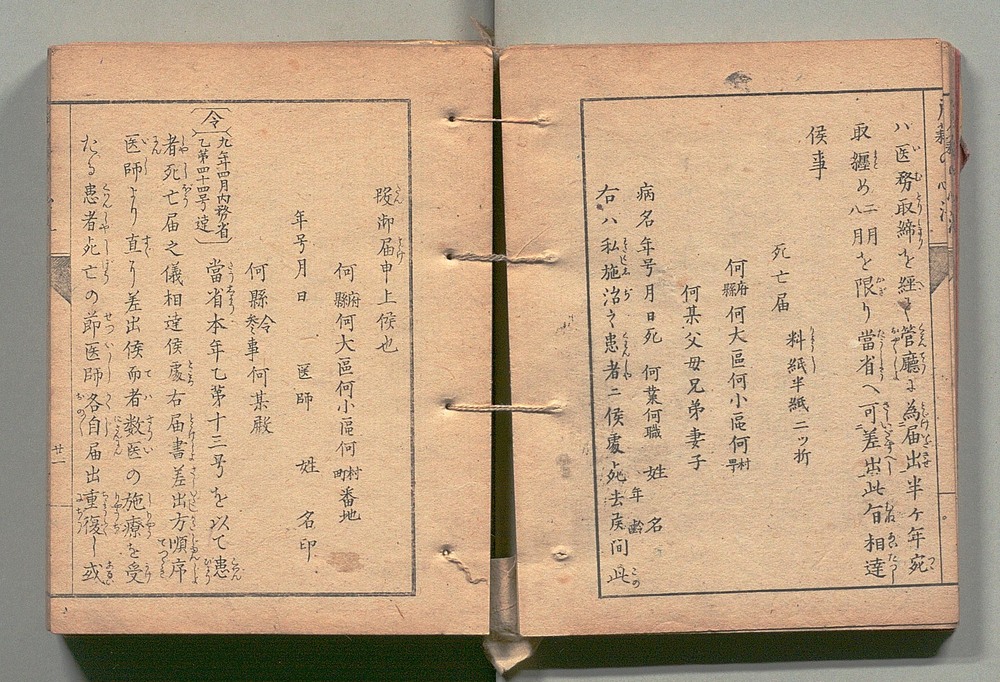 ハ医務取締を経て管廳に為届出半ヶ年宛
取纒め二月八月を限り當省へ可差出此旨相達
候事
死亡届 料紙半紙二ッ折
何府縣何大區何小區何村町
何某父母兄弟妻子
病名年号月日死 何業何職 姓名 年齢
右ハ私施治之患者ニ候處死去候間此
段御届申上候也
何府縣何大區何小區何村町番地
年号月日 医師 姓名印
何縣令参事何某殿
令 九年四月内務省乙第四十四号達 當省本年乙第十三号を以て患
者死亡届之儀相達候處右届書差出方順序
医師より直り差出候而者数医の施療を受
たる患者死亡の節医師各自届出重復し或
廿一